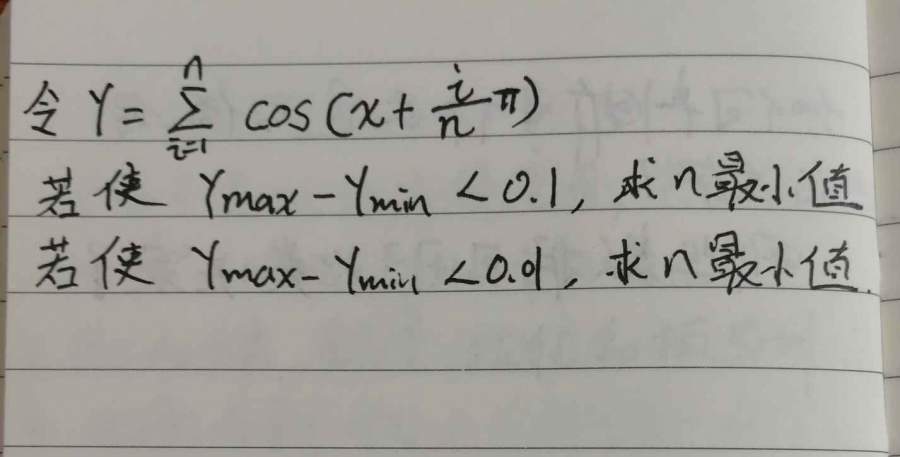 令 Y = \sum_{i=1}^{n} cos(x + \frac{i}{n}π)
若使 Ymax - Ymin < 0.1, 求n最小值
若使 Ymax - Ymin < 0.01, 求n最小值.